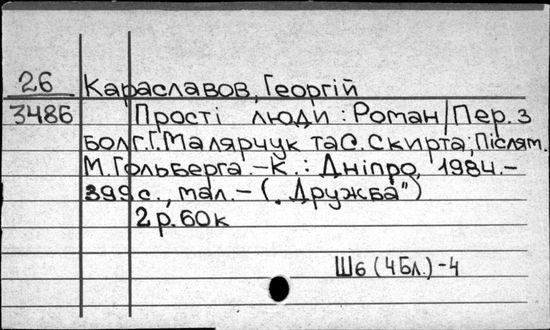 26 Караславов, Георгій
3486 Прості люди: Роман/Пер. з
болг. Г. Малярчук та С. Скирта; Післям.
М. Гольберга. – К.: Дніпро, 1984. –
399 с., мал. – („Дружба")
2 р. 60 к
Ш6 (4Бл.) - 4